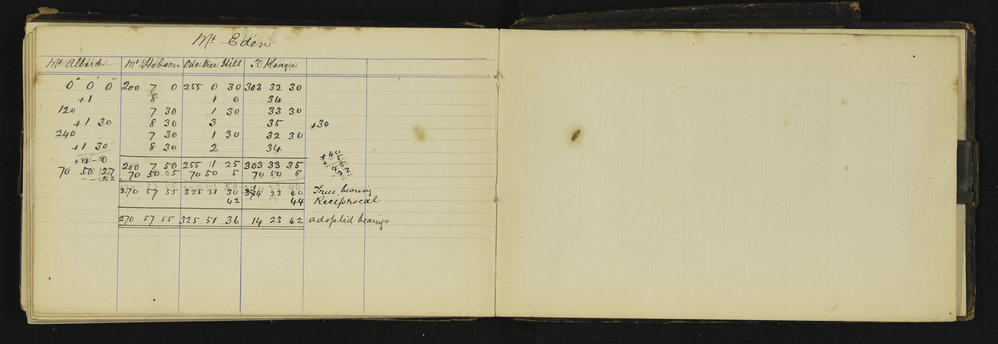 Mt Eden
Mt Albert Mt Hobson One Tree Hill
0° 0' 0" 200 7 0 255 0 30 303 32 30
+1 8 1 0 34
120 7 30 1 30 33 30
+1 30 8 30 3 35 +30
240 7 30 1 30 32 30
+1 30 8 30 2 34
200 7 50 255 1 25 303 33 35
70 50 27 70 50 05 70 50 5 70 50 5
270 57 55 325 51 30 23 40 True bearing
42 44 Reciprocal
270 57 55 325 51 36 14 23 42 adopted bearings